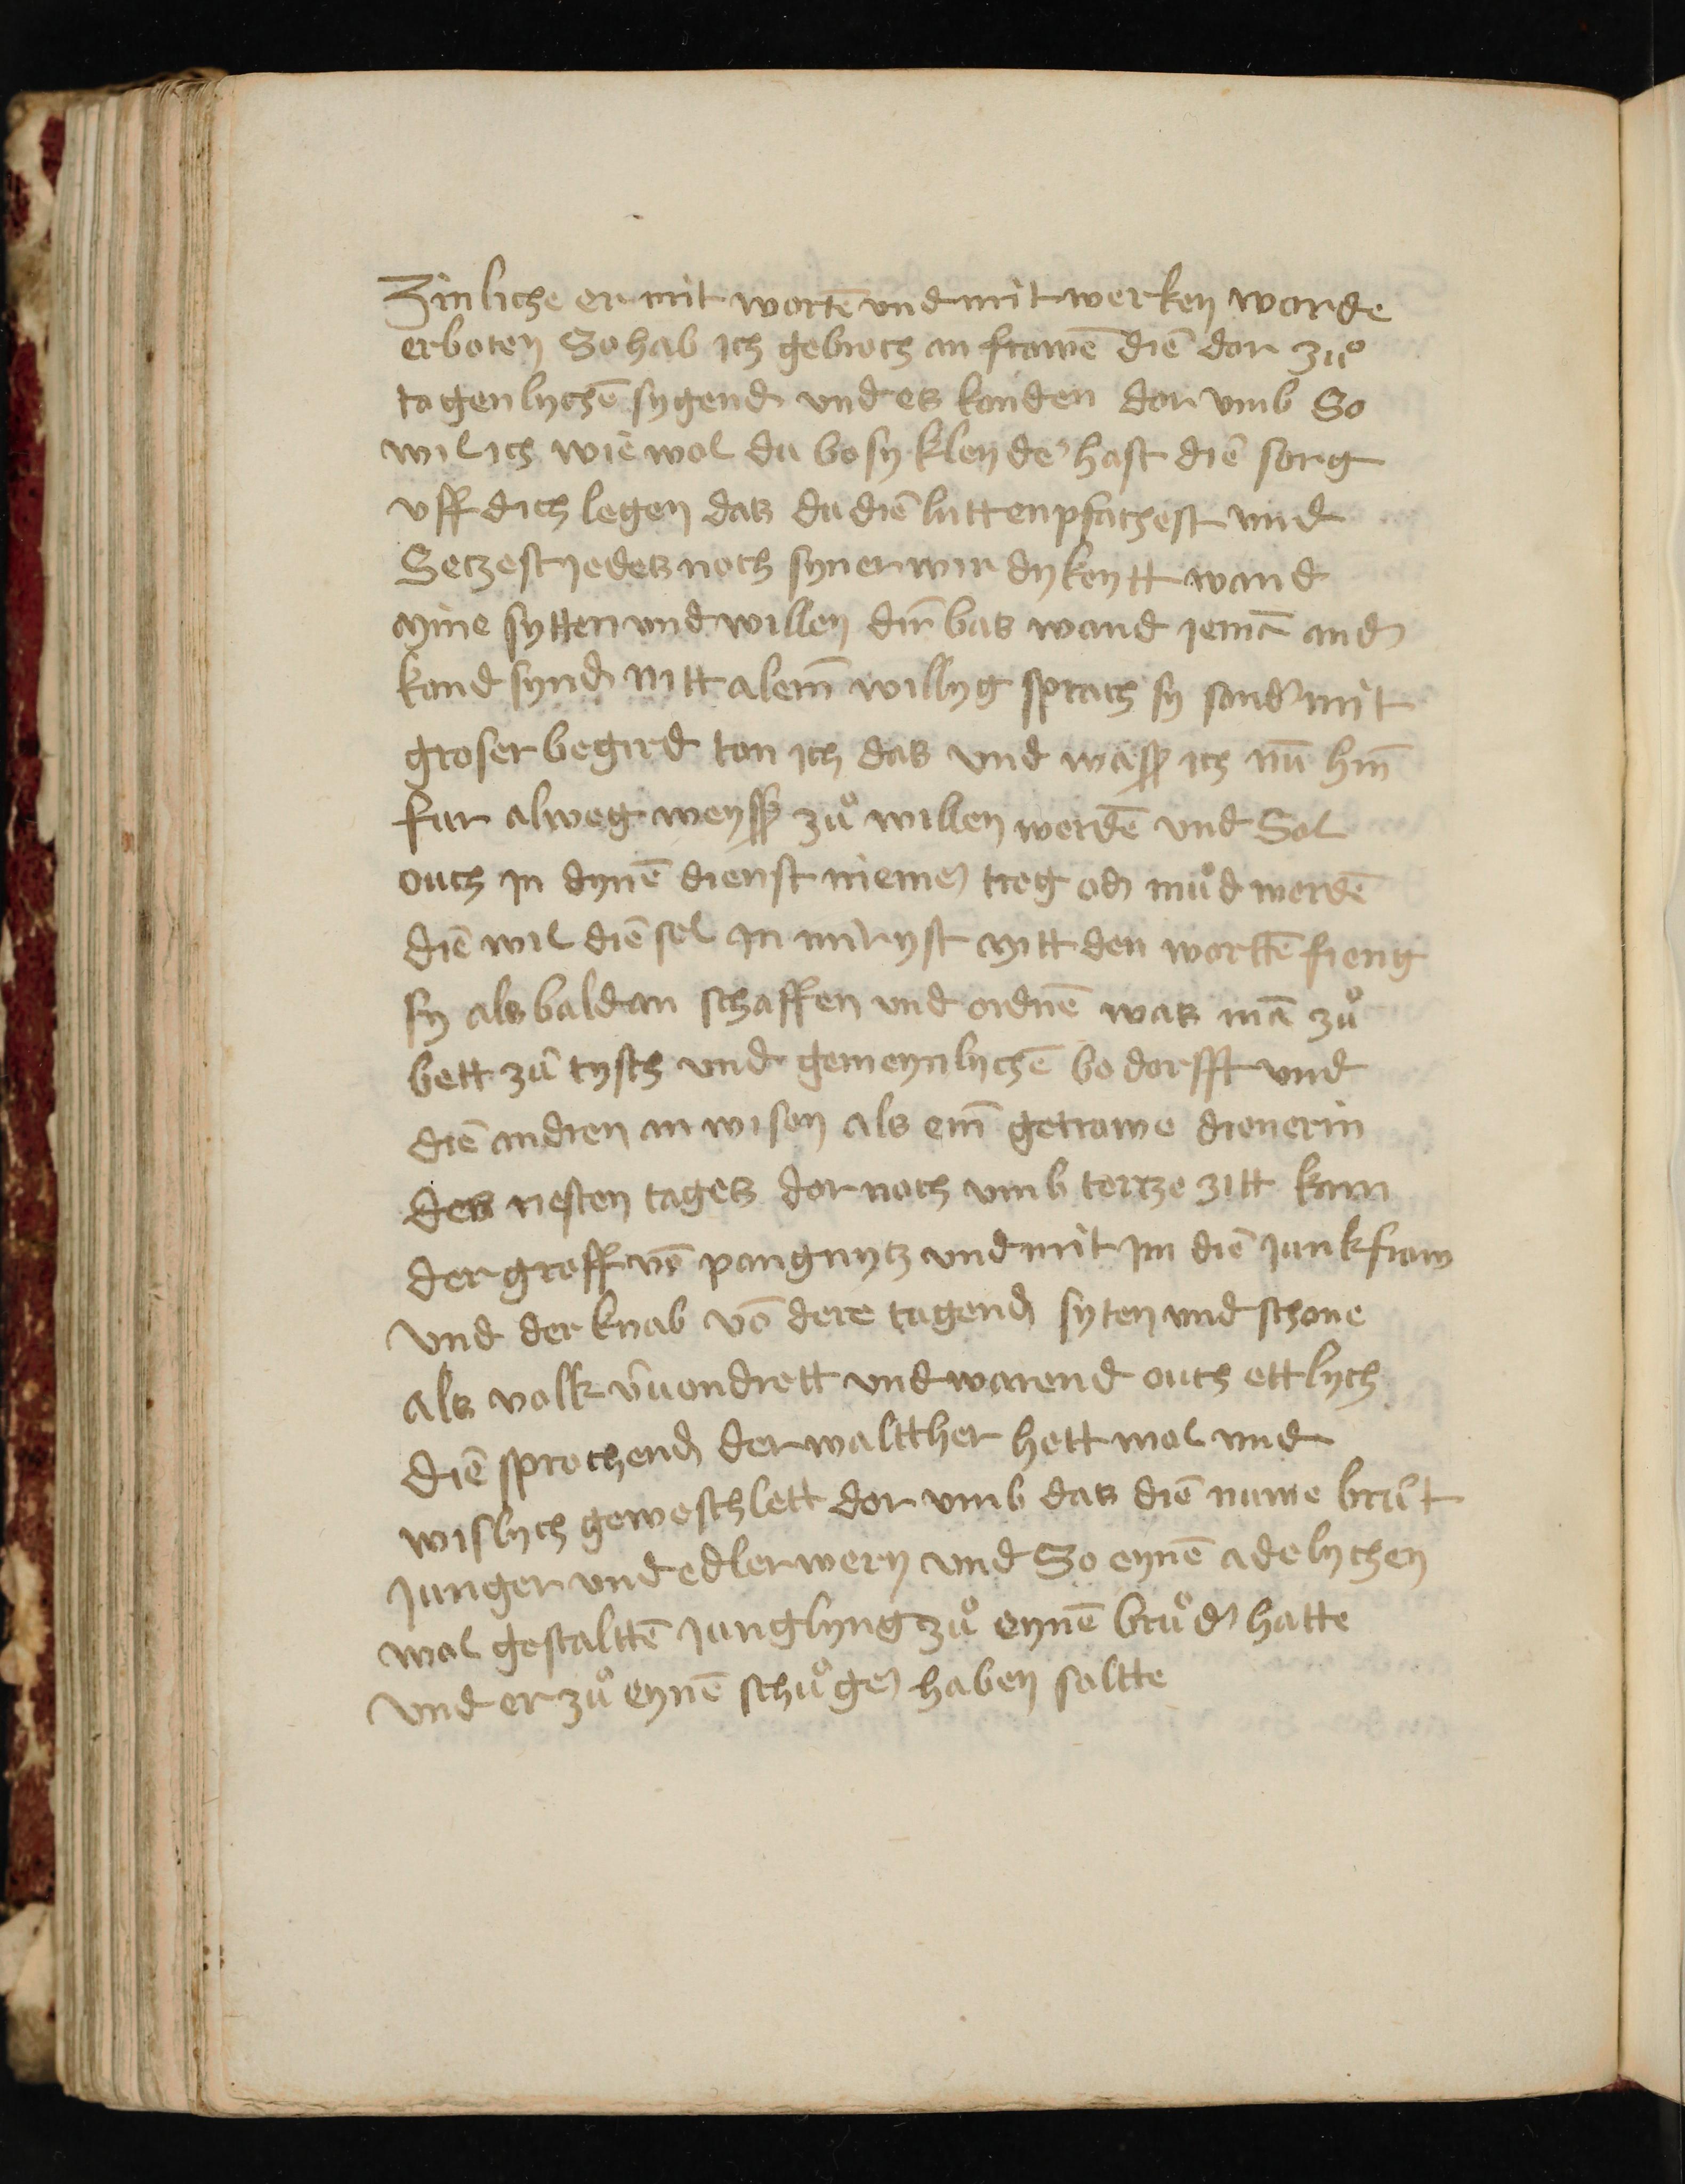 Zinliche er mit wortē vnd mit werken worde
erboten So hab ich gebroch an frowē diē dor zuͦ
tagenlychē sygend vnd es konden dor vmb So
wil ich wie wol du bosy kleyder hast diē sorg
vff dich legen das du diē lutt enpfachest vnd
Setzest iedes noch syner wirdykeytt wand
myne sytten vnd willen dir bas wand iemā and
kand synd nitt alein willyg sprach sy sond mit
groser begird ton ich das vnd wāsß ich nū hin
fur alweg weysß zuͦ willen werdē vnd Sol
ouch in dynē dienst niemer treg od muͦd werdē
diē wil diē sel in mir yst mitt den wortē fieng
sy als bald an schaffen vnd ordnē was mā zuͦ
bett zu tysch vnd gemeynlychē bedorfft vnd
diē andren an wisen als ein getrowe dienerin
des nesten tages dor noch vmb tertze zitt kam
der groff vō pangnytz vnd mit im diē iunkfrow
vnd der knab vō dere tugend syten vnd schone
als volk v̄wondrett vnd warend ouch ettlych
diē sprochend der waltther hett wol vnd
wislych geweschlett dor vmb das diē nuwe brut
iunger vnd edler wery vnd So eynē adelychen
wol gestaltē iunglyng zuͦ eynē bruͦd hatte
vnd er zuͦ eynē schuͦger haben soltte